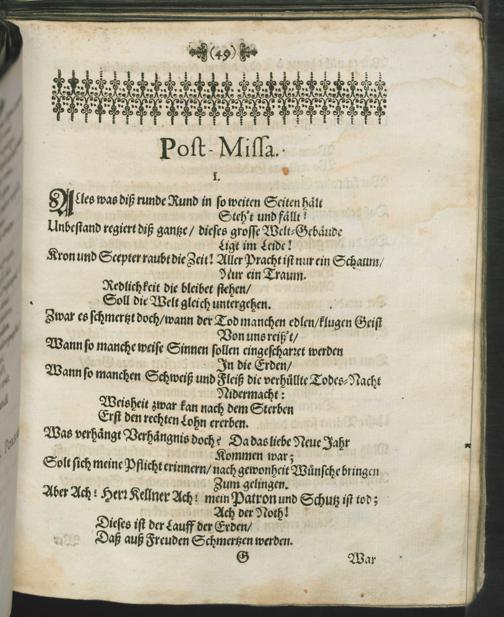 (49)
Post-Missa.
I.
Alles was diß runde Rund in so weiten Seiten hält
Steh't und fällt!
Unbestand regiert diß gantze/ dieses grosse Welt-Gebäude
Ligt im Leide!
Kron und Scepter raubt die Zeit! Aller Pracht ist nur ein Schaum/
Nur ein Traum.
Redlichkeit die bleibet stehen/
Soll die Welt gleich untergehen.
Zwar es schmertzt doch/ wann der Tod manchen edlen/ klugen Geist
Von uns reiß't/
Wann so manche weise Sinnen sollen eingescharret werden
In die Erden/
Wann so manchen Schweiß und Fleiß die verhüllte Todes-Nacht
Nidermacht:
Weisheit zwar kan nach dem Sterben
Erst den rechten Lohn ererben.
Was verhängt Verhängnis doch? Da das liebe Neue Jahr
Kommen war;
Solt sich meine Pflicht erinnern/ nach gewonheit Wünsche bringen
Zum gelingen.
Aber Ach! Herr Kellner Ach! mein Patron und Schutz ist tod;
Ach der Noth!
Dieses ist der Lauff der Erden/
Daß auß Freuden Schmertzen werden.
G
War